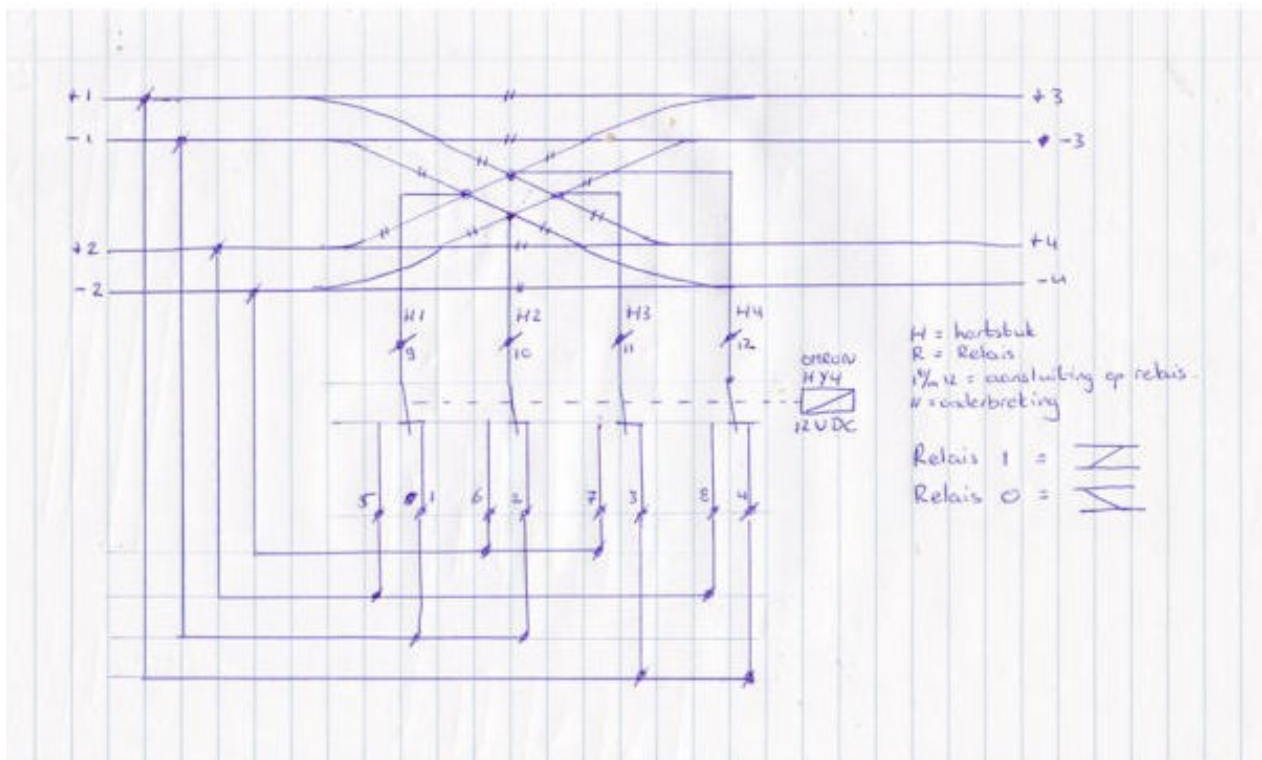 +1
+3
-1
-3
+2
+4
-2
-4
H1
H2
H3
H4
9
10
11
12
OMRON
MY4
12VDC
H = hartstuk
R = Relais
1 t/m 12 = aansluiting op relais
// = onderbreking
5
1
6
2
7
3
8
4
Relais 1 =
Relais 0 =